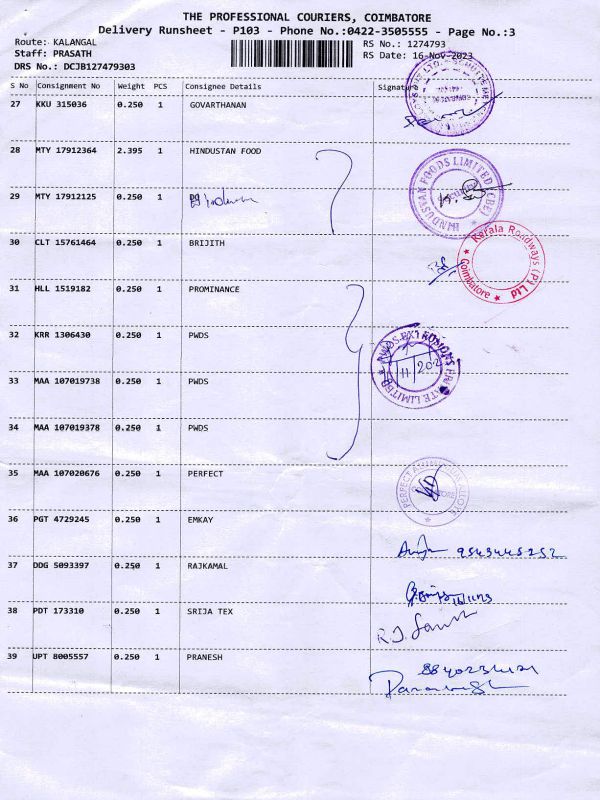 THE PROFESSIONAL COURIERS, COIMBATORE
Delivery Runsheet - P103 - Phone No.:0422-3505555 - Page No.:3
Route: KALANGAL
Staff: PRASATH
DRS No.: DCJB127479303
RS No.: 1274793
RS Date: 16-Nov-2023
S No Consignment No Weight PCS Consignee Details Signature
27 KKU 315036 0.250 1 GOVARTHANAN
28 MTY 17912364 2.395 1 HINDUSTAN FOOD
HINDUSTAN FOODS LIMITED (CBE)
29 MTY 17912125 0.250
30 CLT 15761464 0.250 1 BRIJITH
Kerala Roadways (P) Ltd
Coimbatore
31 HLL 1519182 0.250 1 PROMINANCE
32 KRR 1306430 0.250 1 PWDS
LIMITED
33 MAA 107019738 0.250 1 PWDS
34 MAA 107019378 0.250 1 PWDS
35 MAA 107020676 0.250 1 PERFECT
PERFECT
36 PGT 4729245 0.250 1 EMKAY
37 DDG 5093397 0.250 1 RAJKAMAL
38 PDT 173310 0.250 1 SRIJA TEX
39 UPT 8005557 0.250 1 PRANESH